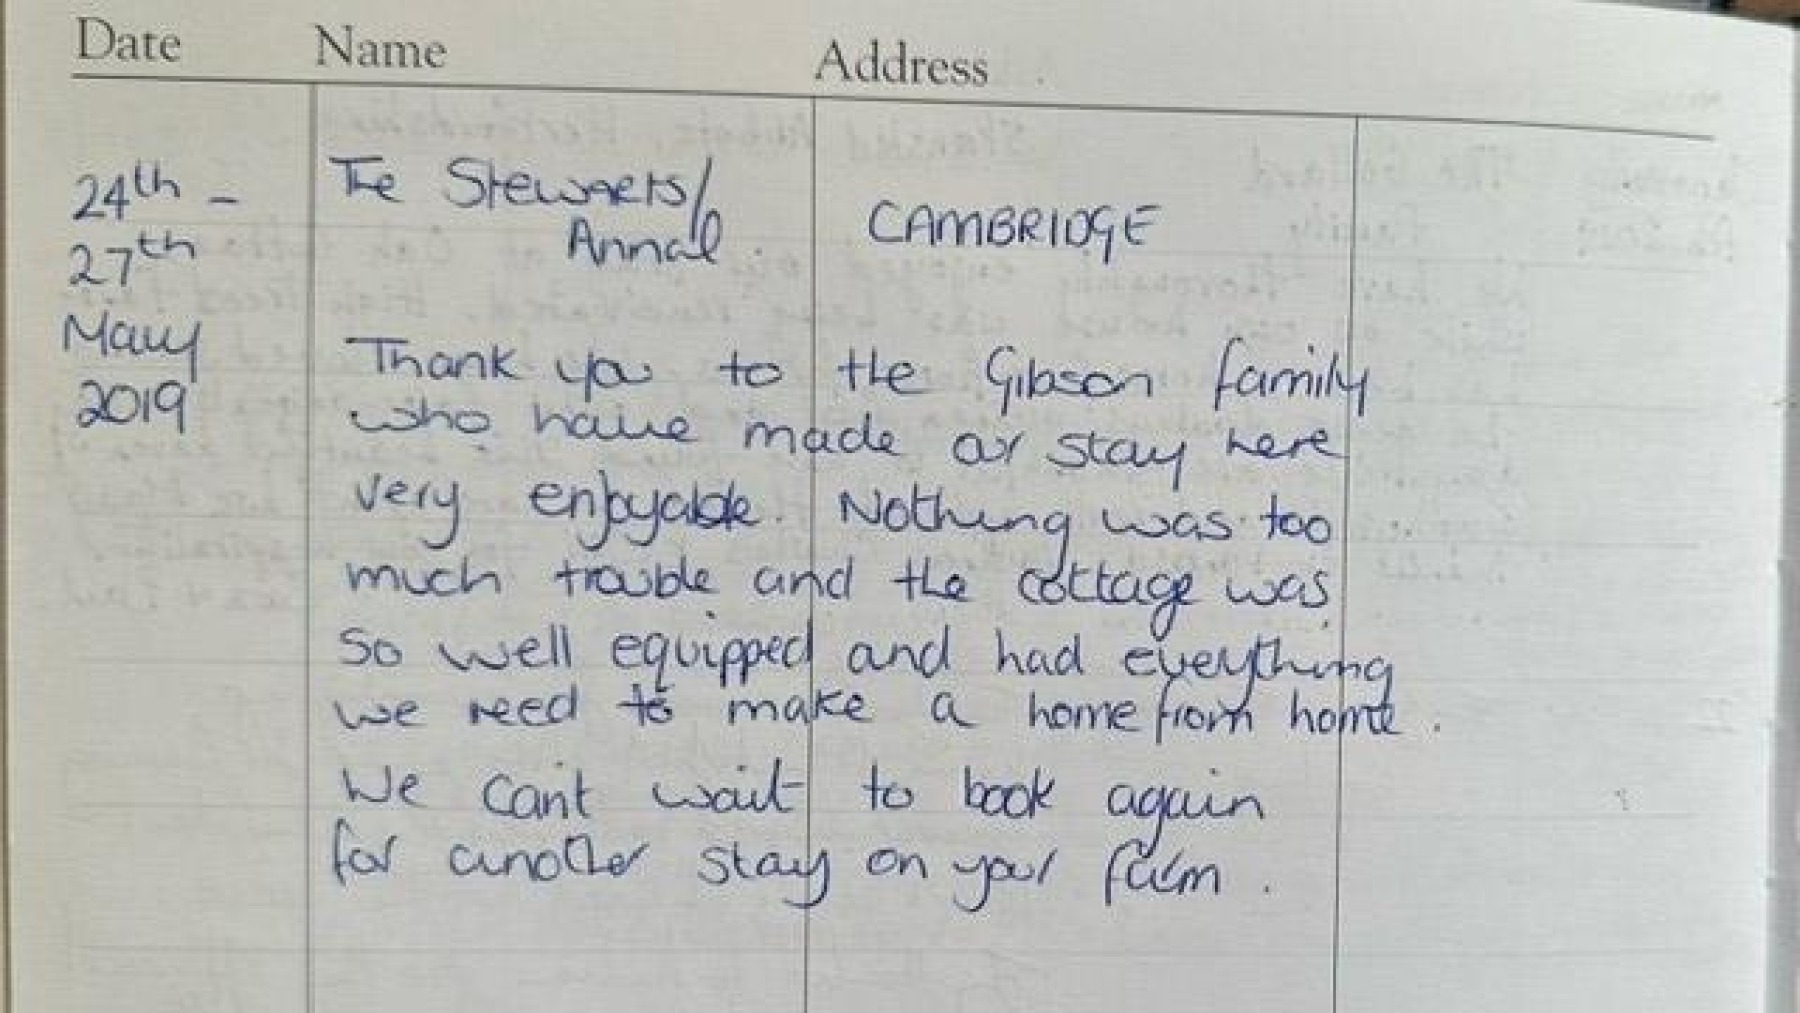 Date Name Address
24th - The Stewarts/
Annal. CAMBRIDGE
27th
May
2019
Thank you to the Gibson family
who have made our stay here
very enjoyable. Nothing was too
much trouble and the cottage was
so well equipped and had everything
we need to make a home from home.
We can't wait to book again
for another stay on your farm.